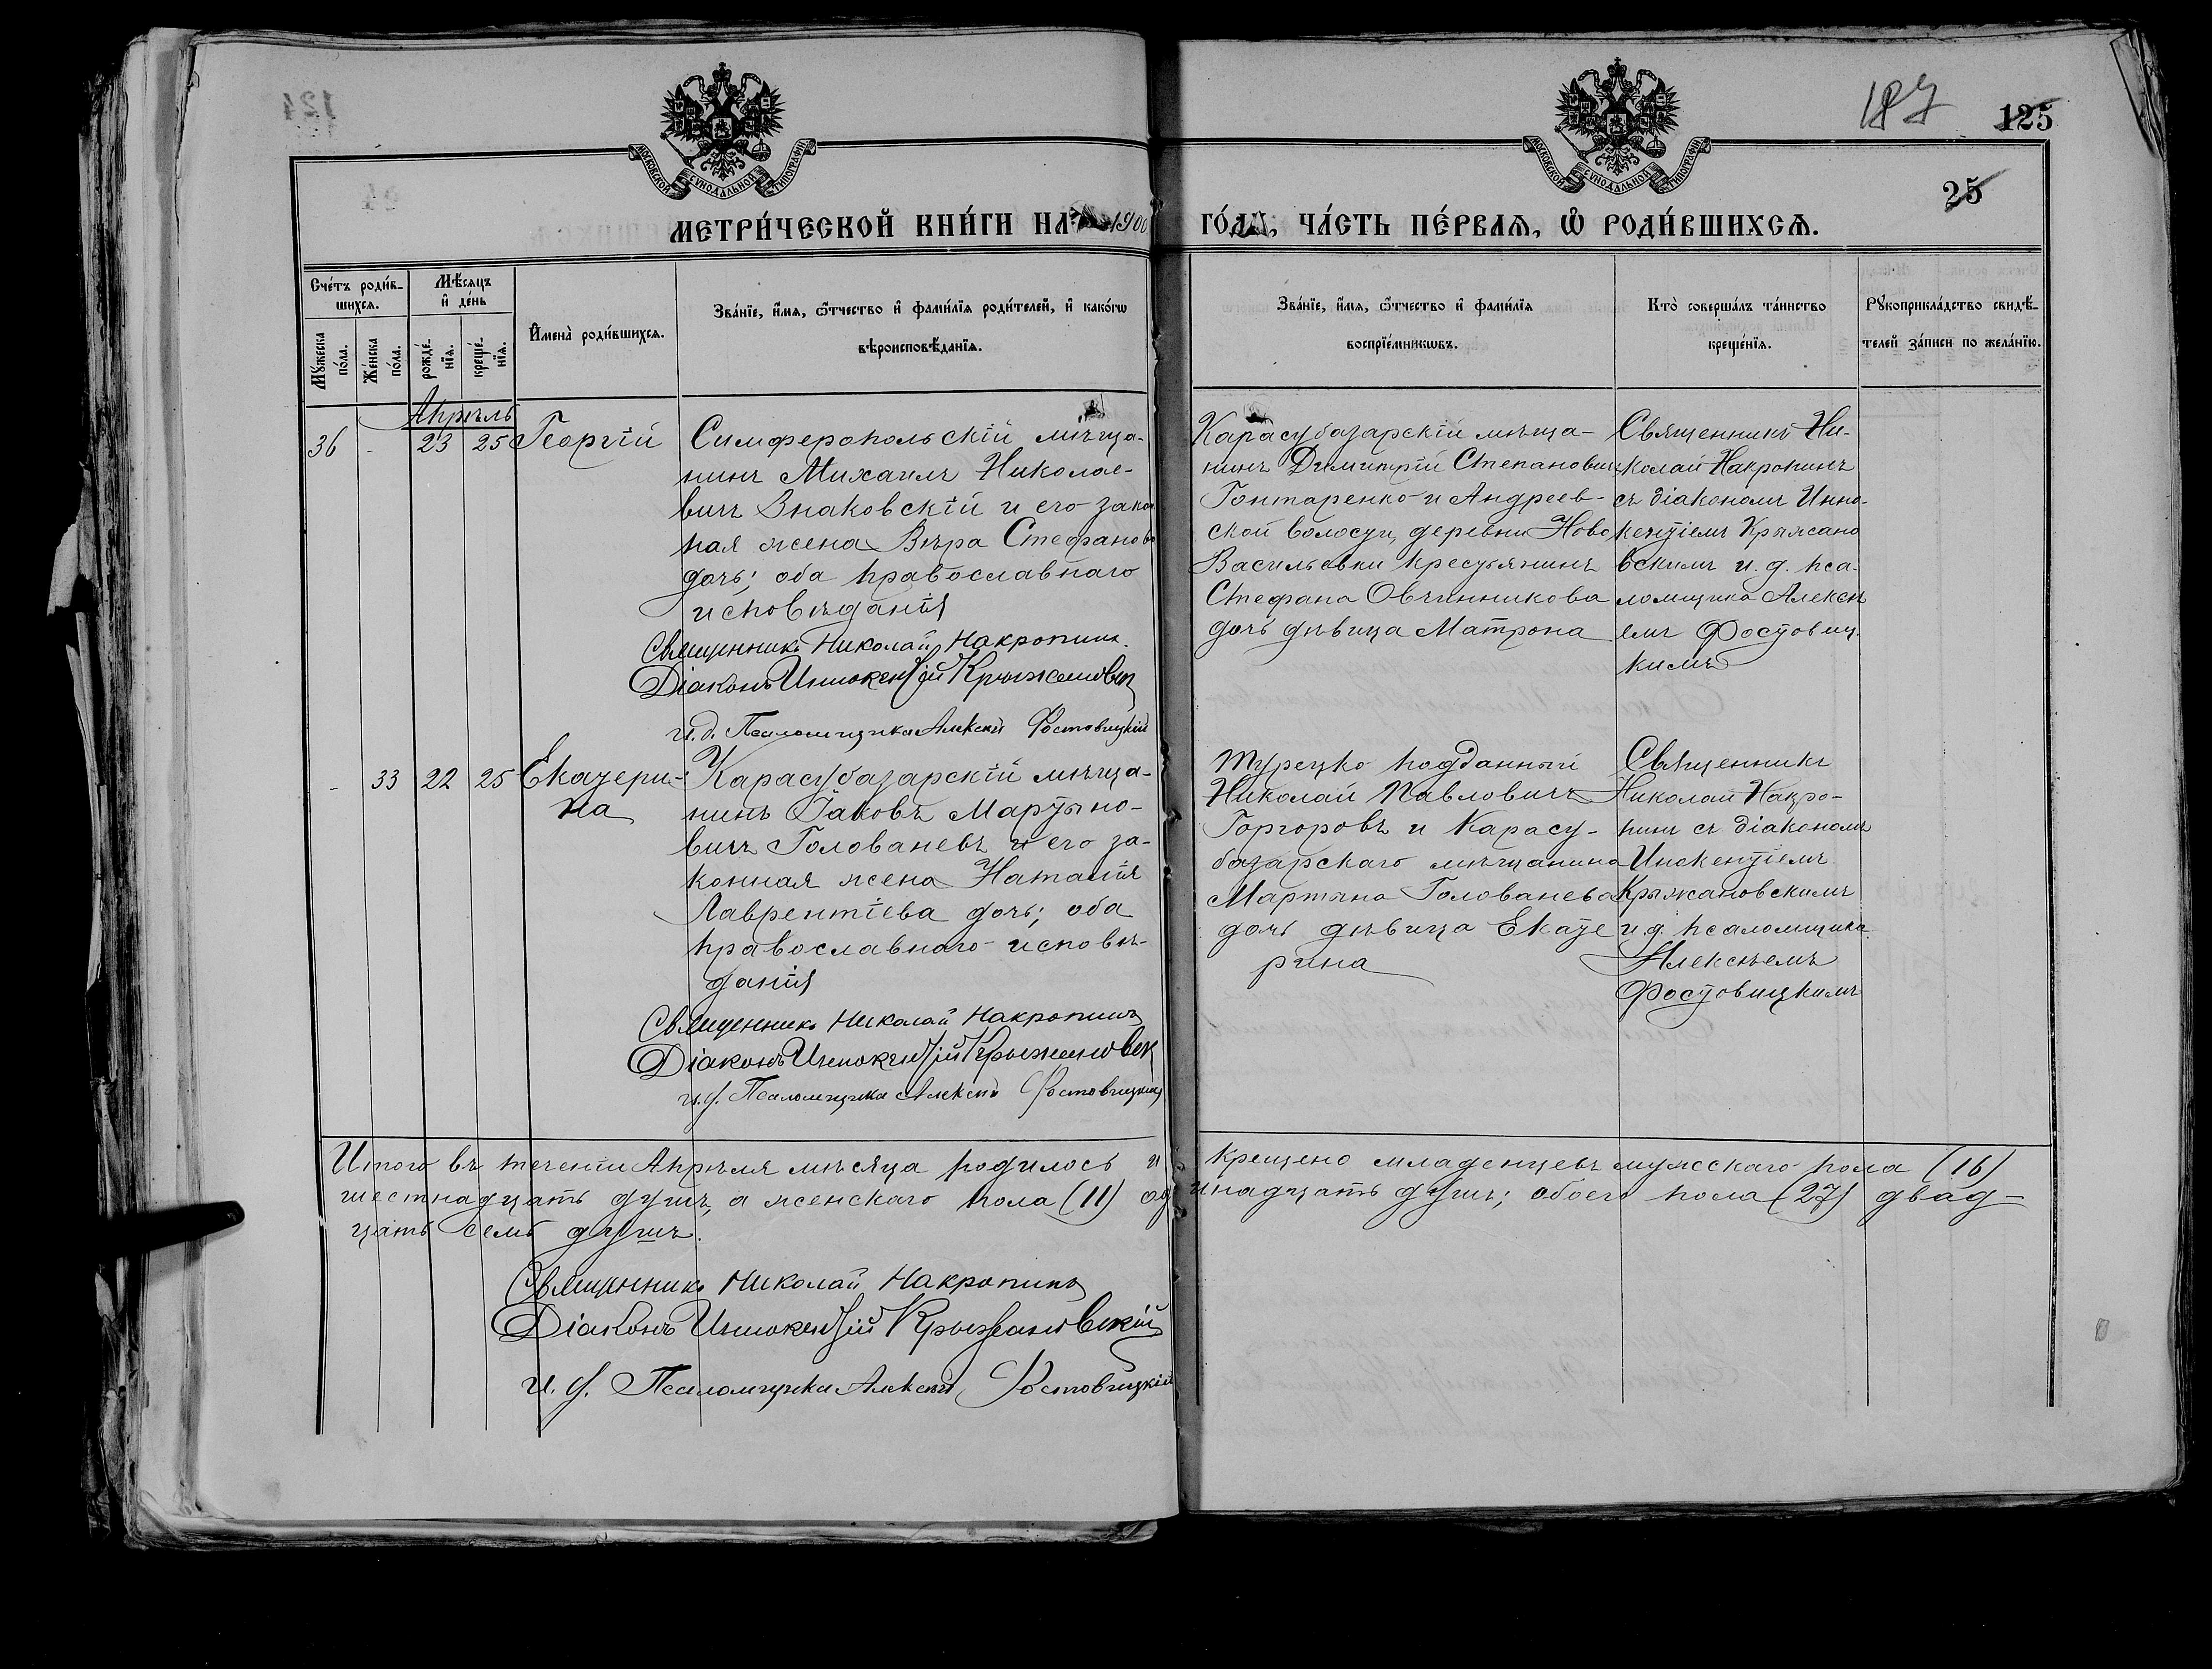 187
125
25
МОСКОВСКОЙ СУНОДАЛЬНОЙ ТИПОГРАФІИ
МОСКОВСКОЙ СУНОДАЛЬНОЙ ТИПОГРАФІИ
МЕТРИ́ЧЕСКОЙ КНИ́ГИ НА 1900
ГО́ДЪ, ЧА́СТЬ ПЕ́РВАѦ, Ѡ РОДИ́ВШИХСѦ.
Сче́тъ роди́в-
шихсѧ.
Мѣ́сѧцъ
и де́нь
Мꙋ́жеска
по́ла.
Же́нска
по́ла.
рожде́-
нїѧ.
креще́-
нїѧ.
И҆мена̀ роди́вшихсѧ.
Зва́нїе, и҆́мѧ, ѻ҆́тчество и҆ фами́лїѧ роди́телей, и҆ како́гѡ
вѣроисповѣ́данїѧ.
Зва́нїе, и҆́мѧ, ѻ҆́тчество и҆ фами́лїѧ
воспрїе́мникѡвъ.
Кто̀ соверша́лъ та́инство
креще́нїѧ.
Рꙋкоприкла́дство свидѣ́-
телей за́писи по жела́нїю.
Апрѣль
36 - 23 25 Георгій
Симферопольскій мѣща-
нинъ Михаилъ Николае-
вичъ Знаковскій и его закон
ная жена Вѣра Стефанова
дочь; оба православнаго
исповѣданія
Священникъ Николай Накропинъ.
Діаконъ Иннокентій Крыжановск
и. д. Псаломщика Алексѣй Фостовицкій
Карасубазарскій мѣща-
нинъ Димитрій Степановичъ
Гонтаренко и Андреев-
ской волости, деревни Ново
Васильевки крестьянина
Стефана Овчинникова
дочь дѣвица Матрона
Священникъ Ни-
колай Накропинъ
съ діакономъ Инно-
кентіемъ Крыжано
вскимъ и. д. пса-
ломщика Алексѣ
емъ Фостовиц-
кимъ
- 33 22 25 Екатери-
на
Карасубазарскій мѣща-
нинъ Іаковъ Мартыно-
вичъ Голованевъ и его за-
конная жена Наталія
Лаврентіева дочь; оба
православнаго исповѣ-
данія
Священникъ Николай Накропинъ
Діаконъ Иннокентій Крыжановск
и. д. Псаломщика Алексѣй Фостовицкій
Турецко подданный
Николай Павловичъ
Горгоровъ и Карасу-
базарскаго мѣщанина
Мартына Голованева
дочь дѣвица Екате
рина
Священникъ
Николай Накро-
пинъ съ діакономъ
Инокентіемъ
Крыжановскимъ
и. д. псаломщика
Алексѣемъ
Фостовицкимъ
Итого въ теченіи Апрѣля мѣсяца родилось и крещено младенцевъ мужскаго пола (16)
шестнадцать душъ, а женскаго пола (11) одинадцать душъ; обоего пола (27) двад-
цать семь душъ.
Священникъ Николай Накропинъ
Діаконъ Иннокентій Крыжановскій
и. д. Псаломщика Алексѣй Фостовицкій